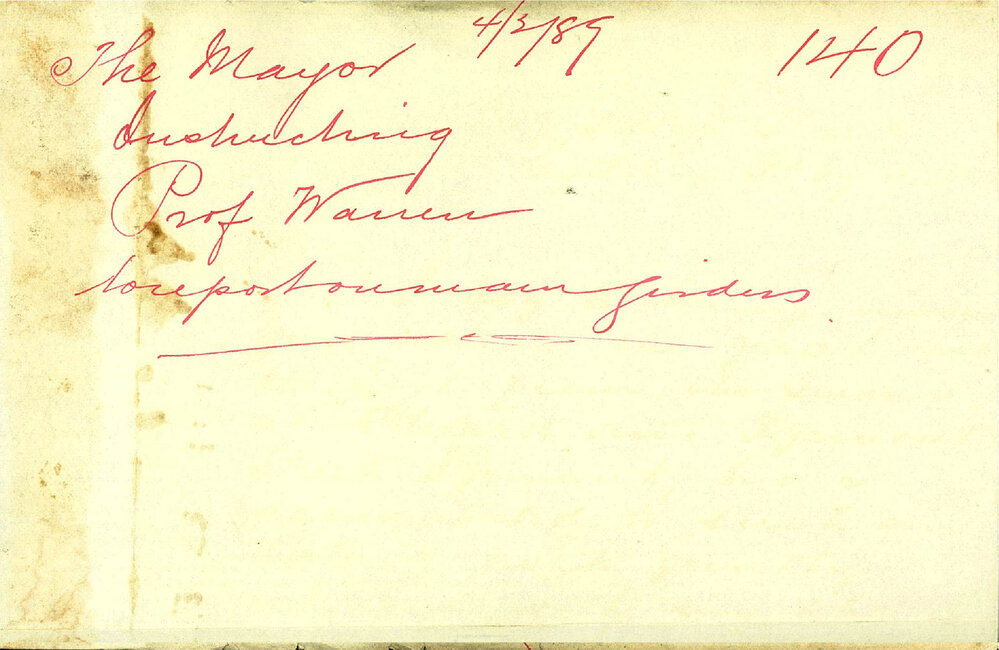 4/3/89
140
The Mayor
Instructing
Prof Warren
to report on main girders